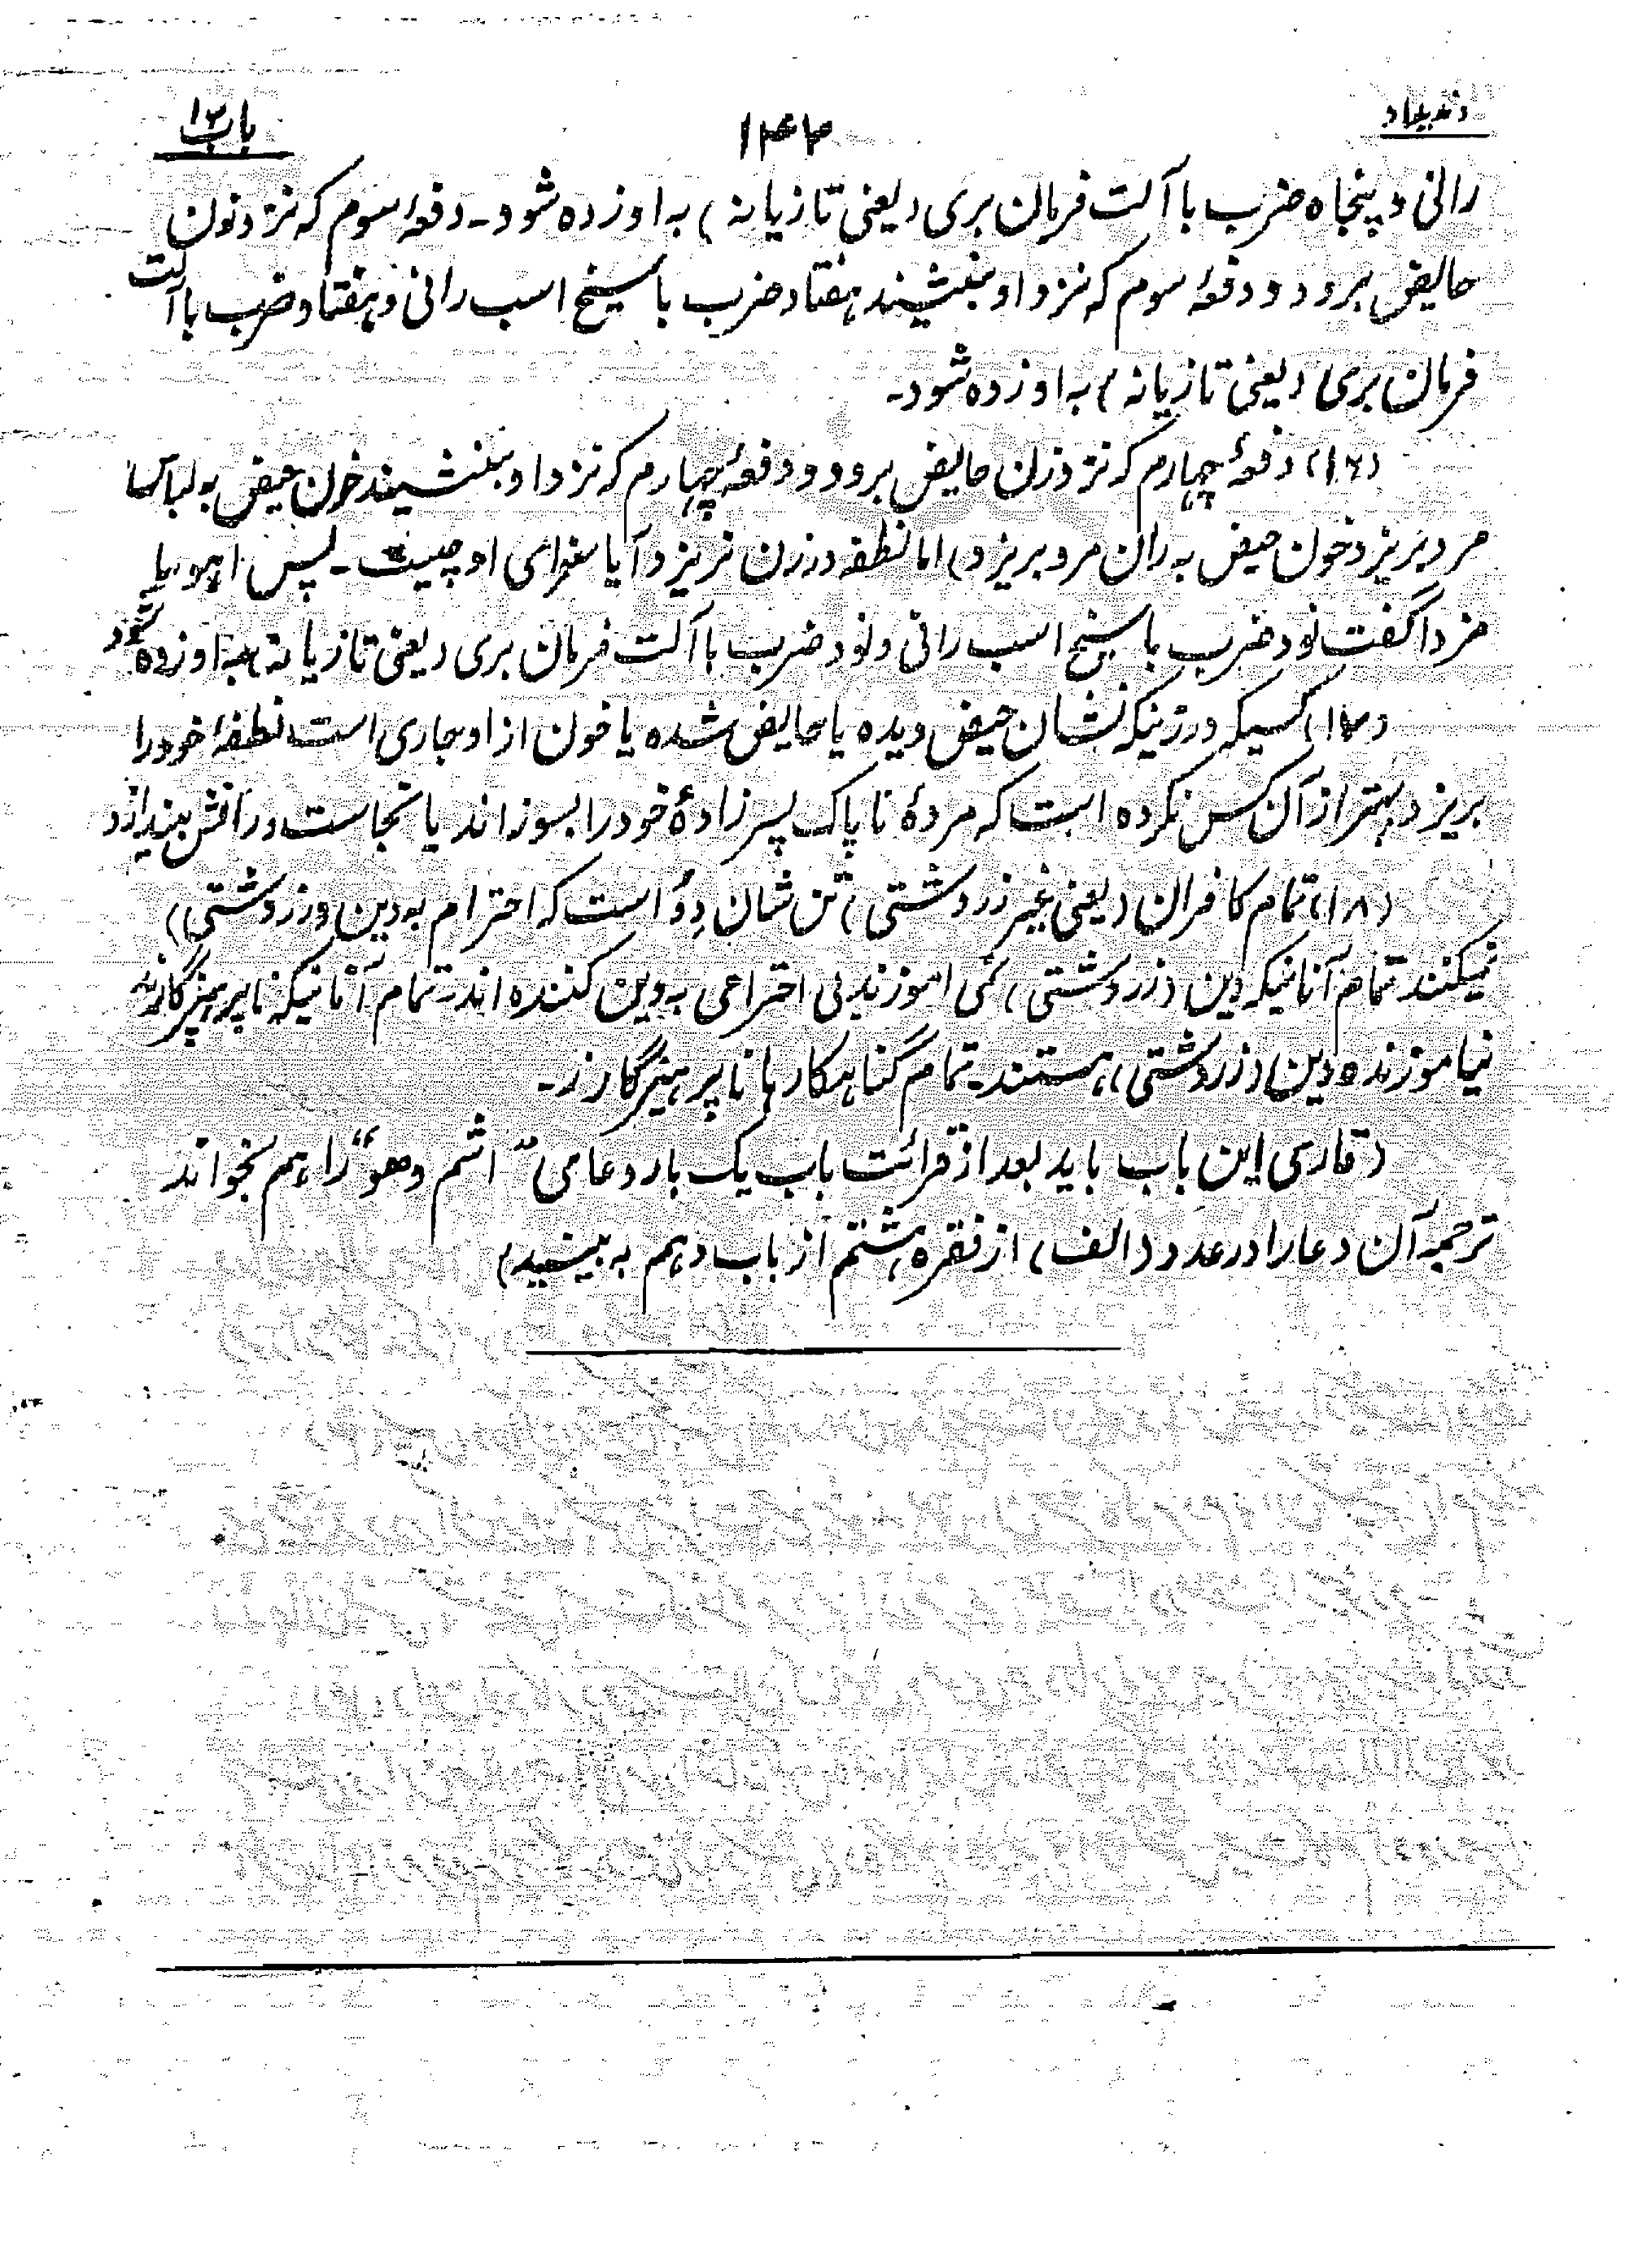 وندیداد
۱۴۲
باب ۱۲
رانی و پنجاه ضرب با آلت فرمان بری (یعنی تازیانه) به او زده شود ـ دفعهٔ سوم که نزد زن
حایض برود و دفعهٔ سوم که نزد او بنشیند هفتاد ضرب با سیخ اسب رانی و هفتاد ضرب با آلت
فرمان بری (یعنی تازیانه) به او زده شود ـ
(۱۶) دفعهٔ چهارم که نزد زن حایض برود و دفعهٔ چهارم که نزد او بنشیند خون حیض به لباس
مرد بریزد خون حیض به ران مرد بریزد) اما نطفه در زن نریزد آیا سزای او چیست ـ پس اهورا
مزدا گفت نود ضرب با سیخ اسب رانی و نود ضرب با آلت فرمان بری (یعنی تازیانه) به او زده شود
(۱۷) کسیکه در زنیکه نشان حیض دیده یا حایض شده یا خون از او جاری است نطفهٔ خود را
بریزد بهتر از آن کس نکرده است که مردهٔ ناپاک پسر زادهٔ خود را بسوزاند یا نجاست در آتش بیندازد
(۱۸) تمام کافران (یعنی غیر زردوشتی) تن شان دوٗ است که احترام به دین (زردوشتی)
نمیکنند تمام آنانیکه دین (زردوشتی) نمی اموزند بی احترامی به دین کننده اند ـ تمام آنانیکه ناپرهیزگارند
نیاموزنده دین (زردوشتی) هستند ـ تمام گناهکارها ناپرهیزگارند ـ
(قاری این باب باید بعد از قرائت باب یک بار دعای ”اشم وهو“ را هم بخواند
ترجمه آن دعا را در عدد (الف) از فقره هشتم از باب دهم به بینید)